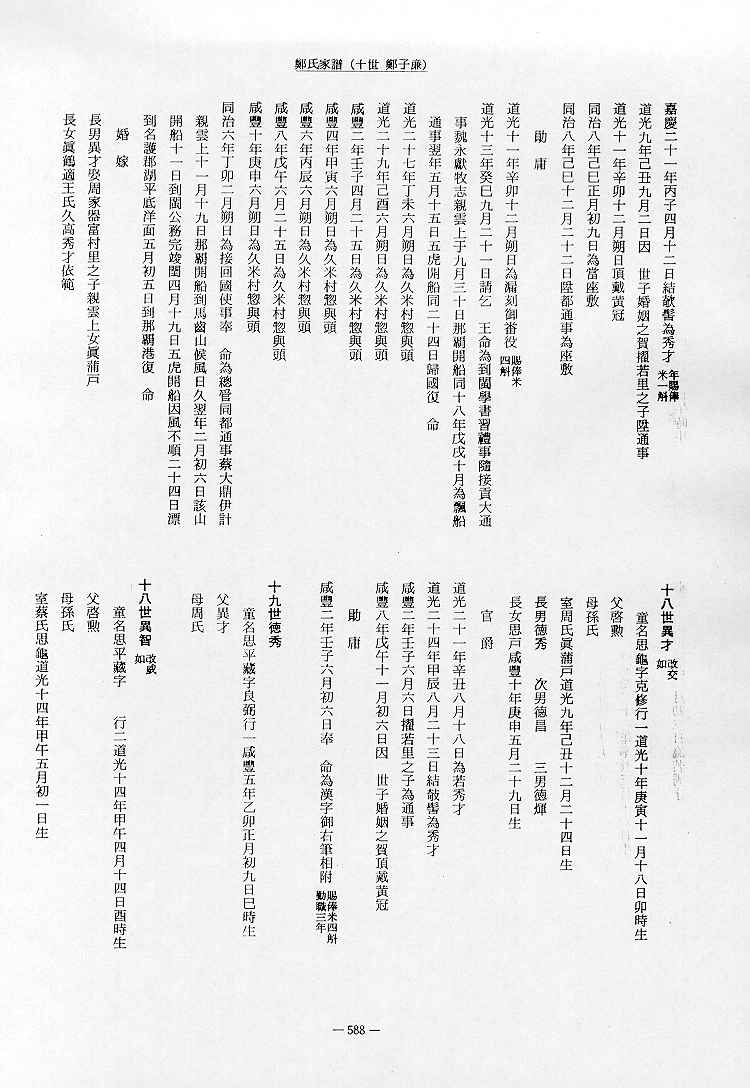 鄭氏家譜（十世 鄭子廉）
嘉慶二十一年丙子四月十二日結欹髻為秀才 年賜俸米一斛
道光九年己丑九月二日因 世子婚姻之賀擢若里之子陞通事
道光十一年辛卯十二月朔日頂戴黃冠
同治八年己巳正月初九日為當座敷
同治八年己巳十二月二十二日陞都通事為座敷
勛庸
道光十一年辛卯十二月朔日為漏刻御番役 賜俸米四斛
道光十三年癸巳九月二十一日請乞 王命為到閩學書習禮事隨接貢大通
事魏永獻牧志親雲上于九月三十日那覇開船同十八年戊戌十月為飄船
通事翌年五月十五日五虎開船同二十四日歸國復 命
道光二十七年丁未六月朔日為久米村惣與頭
道光二十九年己酉六月朔日為久米村惣與頭
咸豐二年壬子四月二十五日為久米村惣與頭
咸豐四年甲寅六月朔日為久米村惣與頭
咸豐六年丙辰六月朔日為久米村惣與頭
咸豐八年戊午六月二十五日為久米村惣與頭
咸豐十年庚申六月朔日為久米村惣與頭
同治六年丁卯二月朔日為接回國使事奉 命為總管同都通事蔡大鼎伊計
親雲上十一月十九日那覇開船到馬齒山候風日久翌年二月初六日該山
開船十一日到閩公務完竣閏四月十九日五虎開船因風不順二十四日漂
到名護郡湖平底洋面五月初五日到那覇港復 命
婚嫁
長男異才娶周家器富村里之子親雲上女眞蒲戶
長女眞鶴適王氏久高秀才依範
十八世異才 改交如
童名思龜字克修行一道光十年庚寅十一月十八日卯時生
父啓勲
母孫氏
室周氏眞蒲戶道光九年己丑十二月二十四日生
長男德秀 次男德昌 三男德煇
長女思戶咸豐十年庚申五月二十九日生
官爵
道光二十一年辛丑八月十八日為若秀才
道光二十四年甲辰八月二十三日結欹髻為秀才
咸豐二年壬子六月六日擢若里之子為通事
咸豐八年戊午十一月初六日因 世子婚姻之賀頂戴黃冠
勛庸
咸豐二年壬子六月初六日奉 命為漢字御右筆相附 賜俸米四斛勤職三年
十九世德秀
童名思平藏字良弼行一咸豐五年乙卯正月初九日巳時生
父異才
母周氏
十八世異智 改威如
童名思平藏字 行二道光十四年甲午四月十四日酉時生
父啓勲
母孫氏
室蔡氏思龜道光十四年甲午五月初一日生
— 588 —